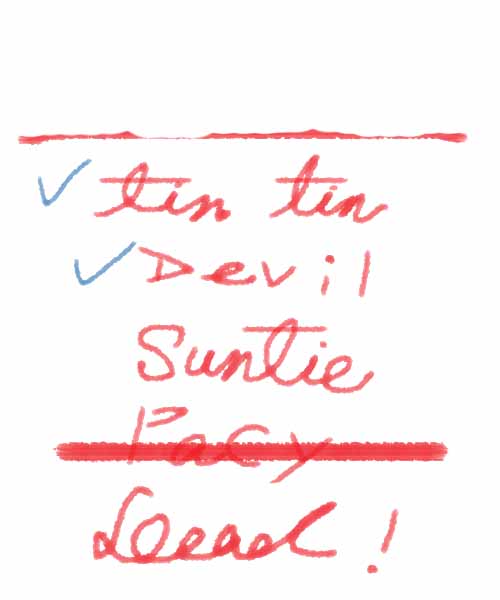 tin tin
Devil
Suntie
Pacy
Dead!